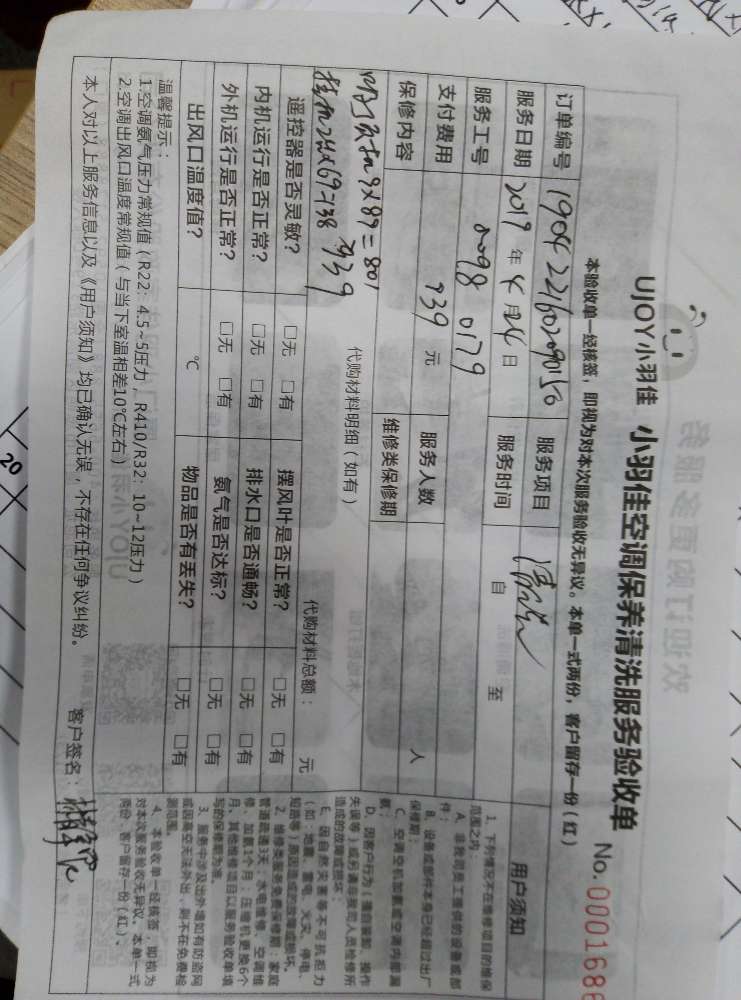 UJOY小羽佳 小羽佳空调保养清洗服务验收单 No. 0001686
本验收单一经核签，即视为对本次服务验收无异议。本单一式两份，客户留存一份（红）
订单编号 服务项目 清洗
服务日期 2019 年 4 月 24 日 服务时间 自 至
服务工号 0098 0179
支付费用 939 元 服务人数 人
保修内容 维修类保修期
代购材料明细（如有） 代购材料总额： 元
9X89=801
2X69=138 939
遥控器是否灵敏？ □无 □有 摆风叶是否正常？ □无 □有
内机运行是否正常？ □无 □有 排水口是否通畅？ □无 □有
外机运行是否正常？ □无 □有 氨气是否达标？ □无 □有
出风口温度值？ ℃ 物品是否有丢失？ □无 □有
温馨提示：
1.空调氨气压力常规值（R22：4.5~5压力，R410/R32：10~12压力）
2.空调出风口温度常规值（与当下室温相差10℃左右）
本人对以上服务信息以及《用户须知》均已确认无误，不存在任何争议纠纷。 客户签名：
用户须知
1、下列情况不在维修项目的维保
范围之内：
A、非我司员工提供的设备或部
件；
B、设备或部件本身已经超过出厂
保修期；
C、空调空机加氨或空调内部漏
氨；
D、因客户行为（擅自装卸、操作
失误等）或另请非我司人员检修所
造成的故障或损坏；
E、因自然灾害等不可抗拒力
（如：地震、雷电、火灾、停电、
短路等）原因造成的故障或损坏。
2、维修类服务免费保修期：家庭
管道疏通3天；水电维修、空调维
修、加氨1个月；压缩机更换6个
月，其他维修项目以服务验收单填
写的保修期为准。
3、服务中涉及出外墙如有防盗网
或因高空无法外出，则不在免费检
测范围。
4、本验收单一经核签，即视为
对本次服务验收无异议。本单一式
两份，客户留存一份（红）。
20